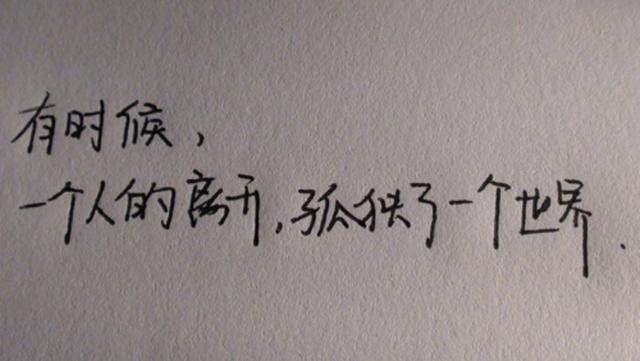 有时候，
一个人的离开，孤独了一个世界.